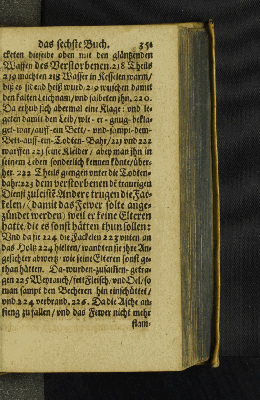 das sechste Buch. 351
cketen dieselbe oben mit den gläntzenden
Waffen des Verstorbenen. 218 Theils
219 machten 218 Wasser in Kesselen warm/
biß es sied end heiß wurd. 219 wuschen damit
den kalten Leichnam/ und salbeten ihn. 220.
Da erhub sich abermal eine Klage: und le-
geten damit den Leib/ wie er gnug bekla-
get war/ auff ein Bett/ und sampt dem
Bett auff ein Todten-Bahr/ 221 und 222
warffen 223 seine Kleider/ aber man ihn in
seinem Leben sonderlich kennen könte/ über-
her. 222 Theils giengen unter die Todten-
bahr: 223 dem verstorbenen de traurigen
Dienst zuleiste Andere trugen die Fac-
kelen/ (damit das Fewer solte ange-
zündet werden) weil er keine Elteren
hatte, die es sonst hätten thun sollen:
Und da sie 224 die Fackelen 223 unten an
das Holtz 224 hielten/ wandten sie ihre An-
gesichter abwerß/ wie seine Elteren sonst ge-
than hätten. Da wurden zusammen getra-
gen 225 Weyrauch/ fett Fleisch/ und Oel/ so
man sampt den Becheren hin einschüttet/
und 224 verbrand. 226. Da die Asche an-
fieng zu fallen/ und das Fewer nicht mehr
flam-